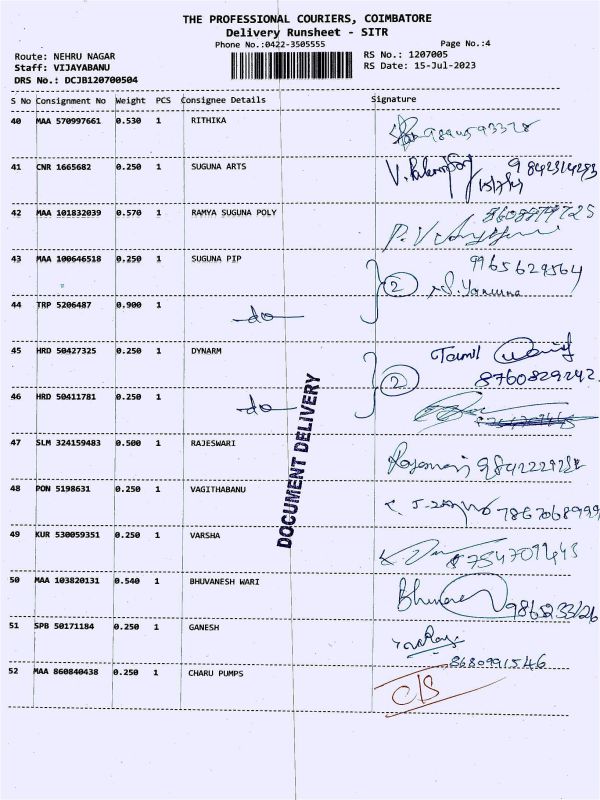 THE PROFESSIONAL COURIERS, COIMBATORE
Delivery Runsheet - SITR
Phone No.:0422-3505555
Page No.:4
Route: NEHRU NAGAR
RS No.: 1207005
Staff: VIJAYABANU
RS Date: 15-Jul-2023
DRS No.: DCJB120700504
S No Consignment No Weight PCS Consignee Details Signature
40 MAA 570997661 0.530 1 RITHIKA
41 CNR 1665682 0.250 1 SUGUNA ARTS
42 MAA 101832039 0.570 1 RAMYA SUGUNA POLY
43 MAA 100646518 0.250 1 SUGUNA PIP 9965629564
2
44 TRP 5206487 0.900 1 -do-
45 HRD 50427325 0.250 1 DYNARM Tamil
2 8760829242
46 HRD 50411781 0.250 1 -do-
47 SLM 324159483 0.500 1 RAJESWARI
48 PON 5198631 0.250 1 VAGITHABANU
49 KUR 530059351 0.250 1 VARSHA
50 MAA 103820131 0.540 1 BHUVANESH WARI
51 SPB 50171184 0.250 1 GANESH
8680991546
52 MAA 860840438 0.250 1 CHARU PUMPS C/S
DOCUMENT DELIVERY